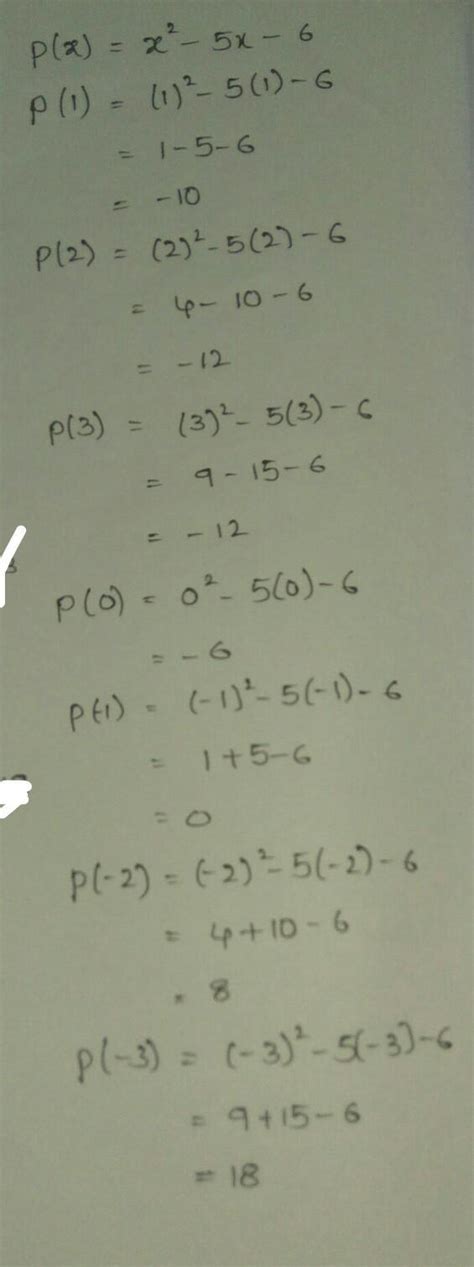 p(x) = x² - 5x - 6
p(1) = (1)² - 5(1) - 6
= 1 - 5 - 6
= -10
p(2) = (2)² - 5(2) - 6
= 4 - 10 - 6
= -12
p(3) = (3)² - 5(3) - 6
= 9 - 15 - 6
= -12
p(0) = 0² - 5(0) - 6
= -6
p(-1) = (-1)² - 5(-1) - 6
= 1 + 5 - 6
= 0
p(-2) = (-2)² - 5(-2) - 6
= 4 + 10 - 6
= 8
p(-3) = (-3)² - 5(-3) - 6
= 9 + 15 - 6
= 18